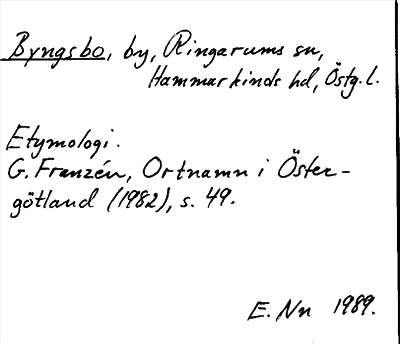 Byngsbo, by, Ringarums sn,
Hammarkinds hd, Östg. l.
Etymologi.
G. Franzén, Ortnamn i Öster-
götland (1982), s. 49.
E. Nn 1989.